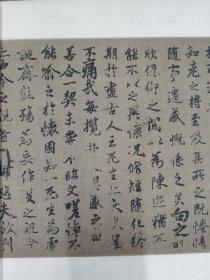 知老之將至及其所之既惓情
隨事遷感慨係之矣向之所
欣俛仰之閒以為陳迹猶不
能不以之興懷況脩短隨化終
期於盡古人云死生亦大矣豈
不痛哉每攬昔人興感之由
若合一契未嘗不臨文嗟悼不
能喻之於懷固知一死生為虛
誕齊彭殤為妄作後之視今